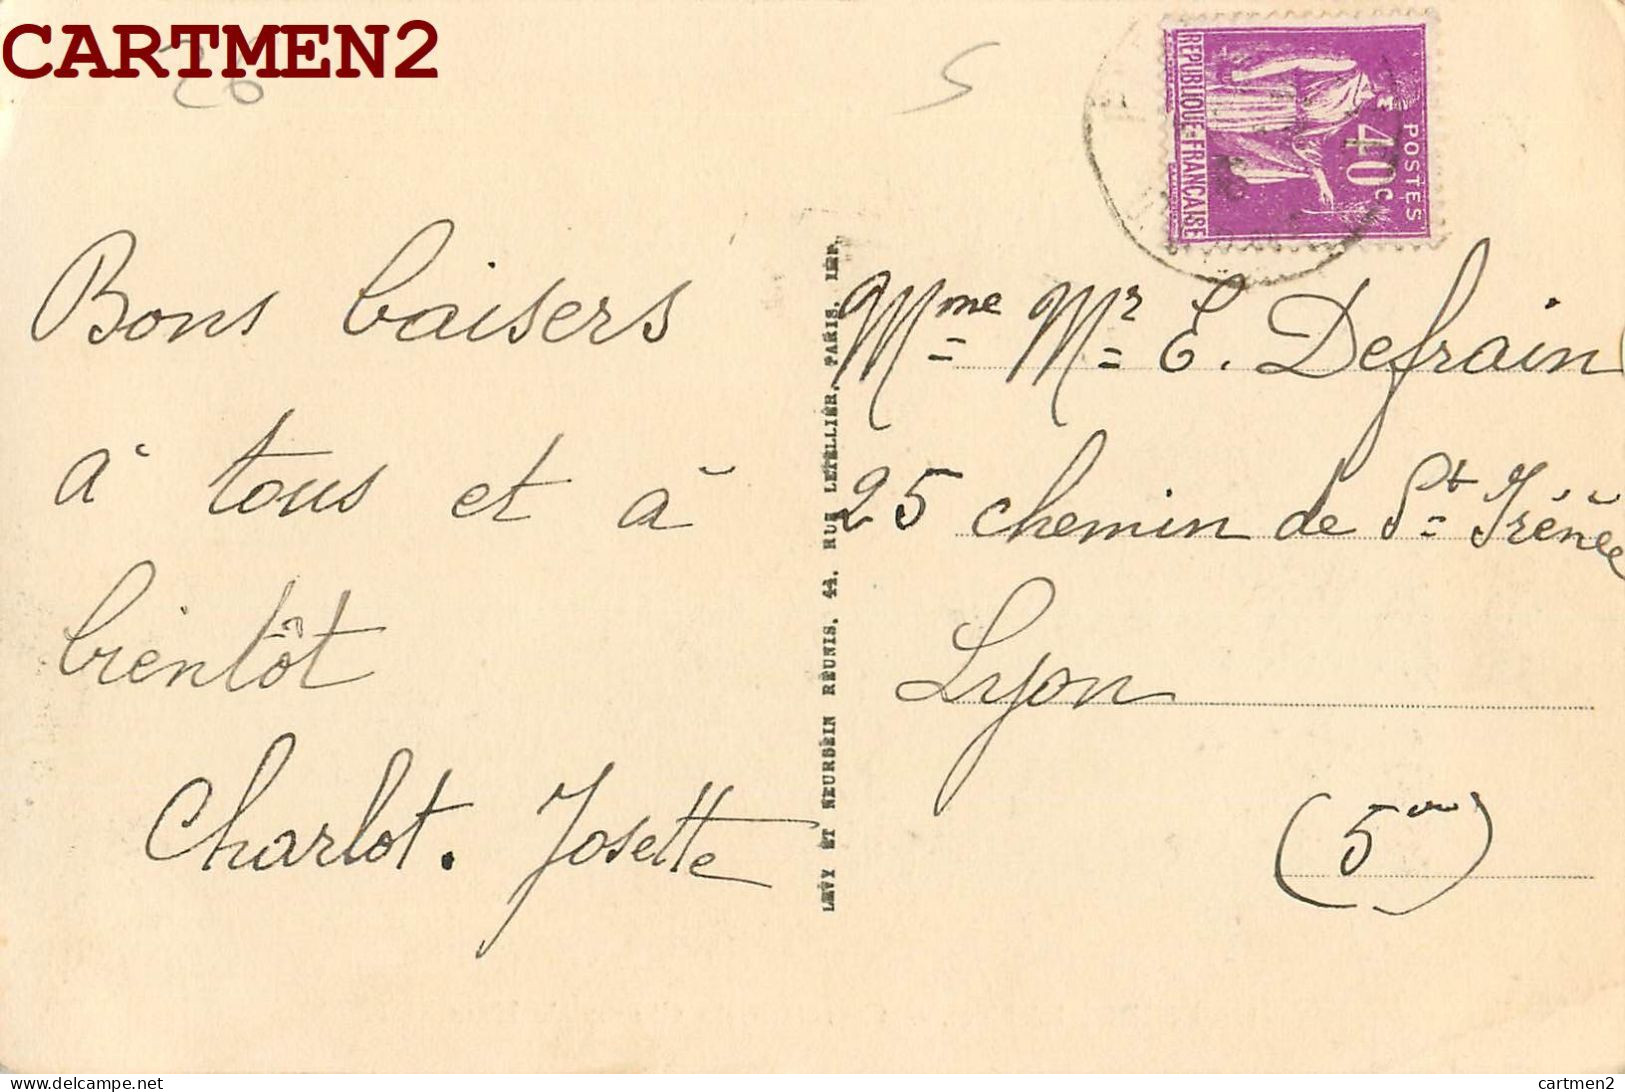 CARTMEN2
26
S
REPUBLIQUE=FRANÇAISE
40c
POSTES
Bons baisers
à tous et à
bientôt
Charlot. Josette
LEVY ET NEURDEIN REUNIS, 44, RUE LETELLIER, PARIS. IMP.
Mme Mr E. Defrain
25 chemin de St Irénée
Lyon
(5me)
cartmen2